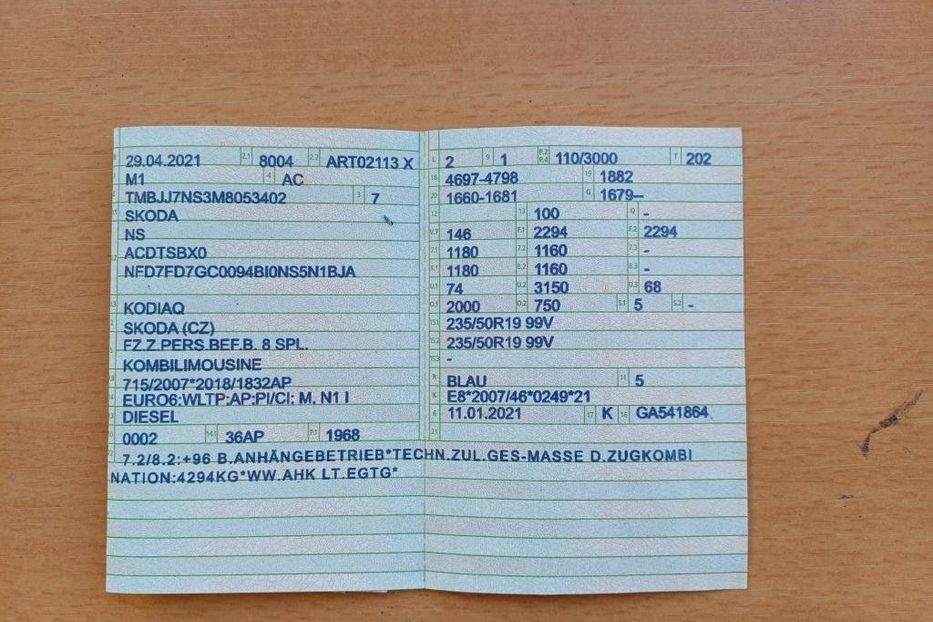 B 29.04.2021 2.1 8004 2.2 ART02113 X
M1 4 AC
TMBJJ7NS3M8053402 3 7
SKODA
NS
ACDTSBX0
NFD7FD7GC0094BI0NS5N1BJA
KODIAQ
SKODA (CZ)
FZ.Z.PERS.BEF.B. 8 SPL.
KOMBILIMOUSINE
715/2007*2018/1832AP
EURO6:WLTP:AP:PI/CI: M, N1 I
DIESEL
0002 14.1 36AP P.1 1968
L 2 9 1 P.2 P.4 110/3000 T 202
18 4697-4798 19 1882
20 1660-1681 G 1679--
12 13 100 Q -
V.7 146 F.1 2294 F.2 2294
7.1 1180 7.2 1160 7.3 -
8.1 1180 8.2 1160 8.3 -
U.1 74 U.2 3150 U.3 68
O.1 2000 O.2 750 S.1 5 S.2 -
15.1 235/50R19 99V
15.2 235/50R19 99V
15.3 -
R BLAU 11 5
K E8*2007/46*0249*21
6 11.01.2021 17 K 16 GA541864
21
22 7.2/8.2:+96 B.ANHÄNGEBETRIEB*TECHN.ZUL.GES-MASSE D.ZUGKOMBI
NATION:4294KG*WW.AHK LT.EGTG*